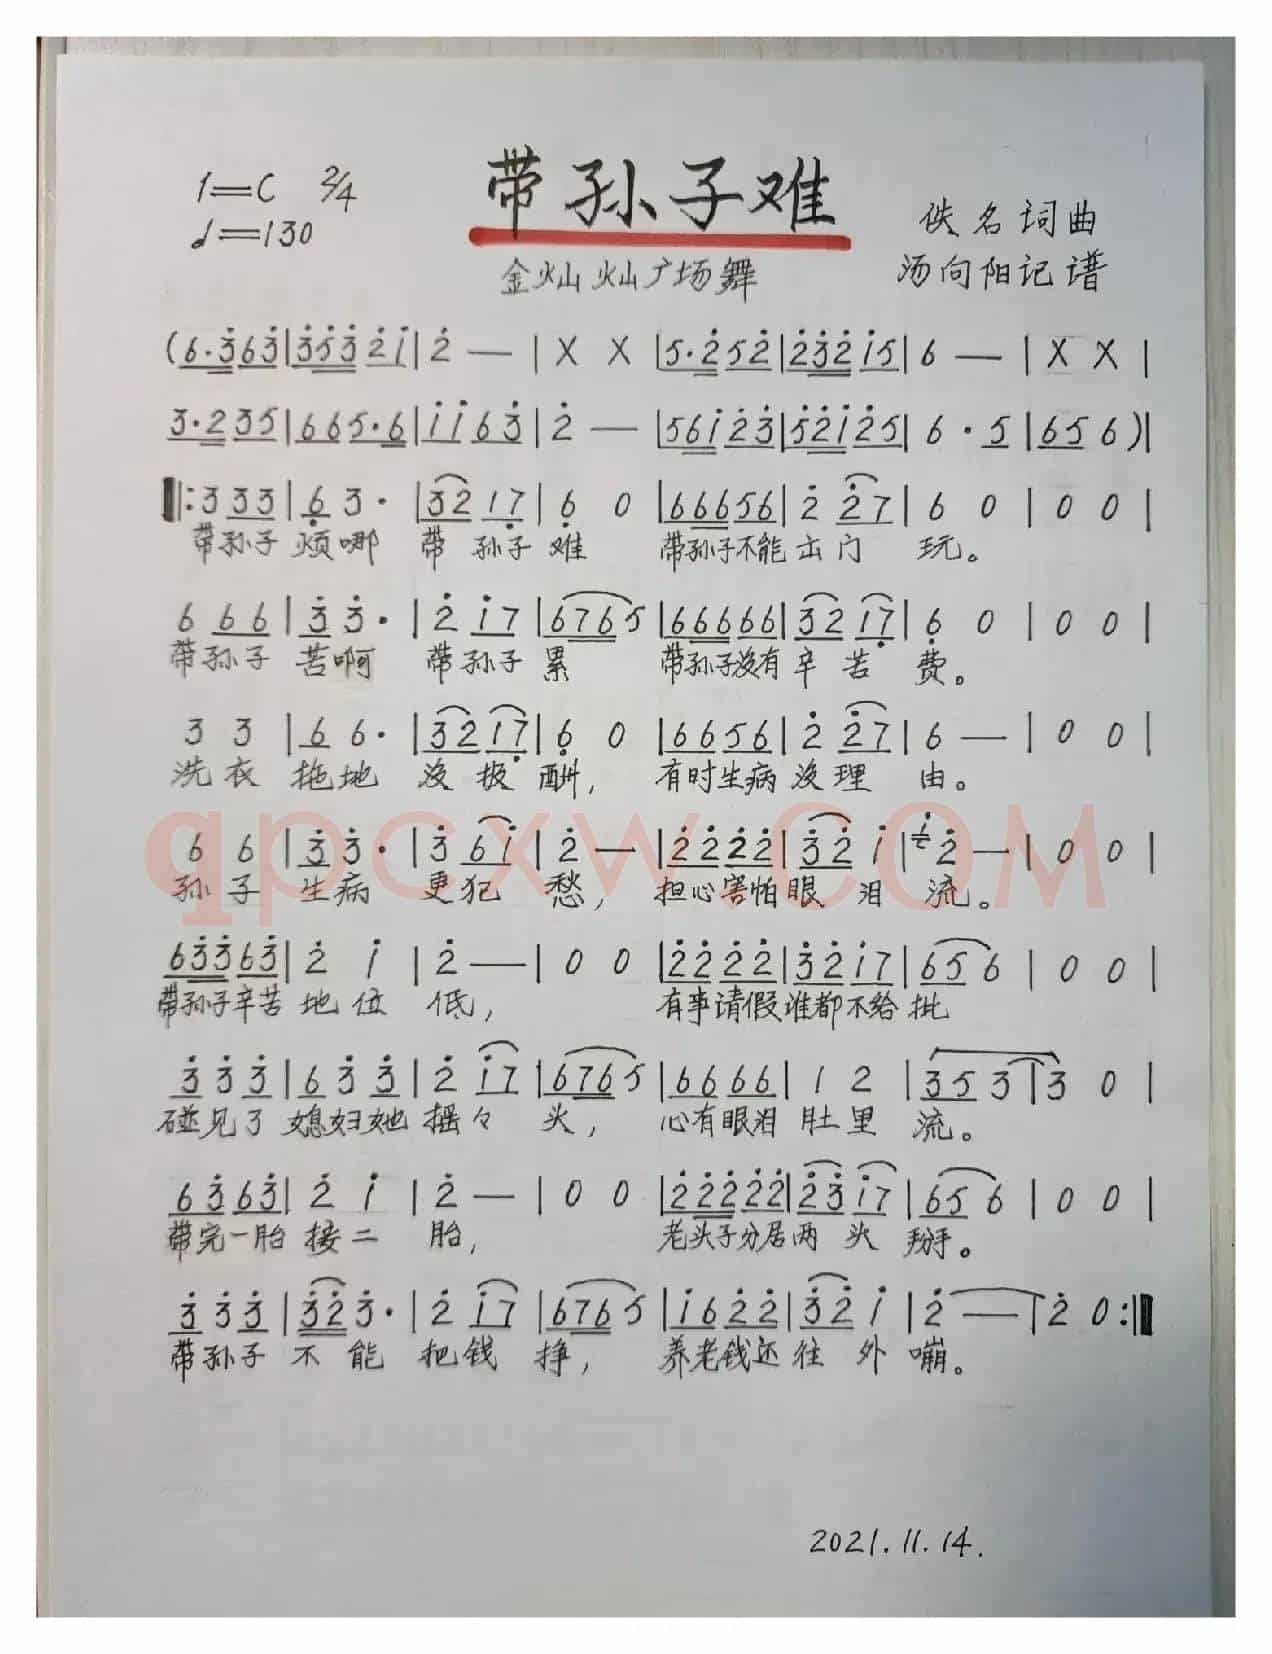 带孙子难
1=C 2/4
♩=130
佚名词曲
金灿灿广场舞
汤向阳记谱
(6·363|35321|2—|X X|5·252|23215|6—|X X|
3·235|665·6|1163|2—|56123|52125|6·5|656)|
‖:333 3|6 3·|3217|6 0|66656|2 27|6 0|0 0|
带孙子烦哪 带孙子难 带孙子不能出门 玩。
6 66|3 3·|2 17|6765|66666|3217|6 0|0 0|
带孙子 苦啊 带孙子 累 带孙子没有辛苦 费。
3 3|6 6·|3217|6 0|6656|2 27|6—|0 0|
洗衣 拖地 没报酬, 有时生病没理 由。
6 6|3 3·|3 61|2—|2222|32 1|2—|0 0|
孙子 生病 更犯 愁, 担心害怕眼 泪 流。
63363|2 1|2—|0 0|2222|3217|656|0 0|
带孙子辛苦 地位 低, 有事请假谁都不给 批
3 33|6 33|2 17|6765|6666|1 2|353|3 0|
碰见了 媳妇她 摇々 头, 心有眼泪 肚里 流。
6363|2 1|2—|0 0|22222|2317|656|0 0|
带完一胎 接二 胎, 老头子分居两 头 掰。
3 33|323·|2 17|6765|1622|32 1|2—|2 0:‖
带孙子 不能 把钱 挣, 养老钱还往 外 嘣。
qpcxw.com
2021.11.14.